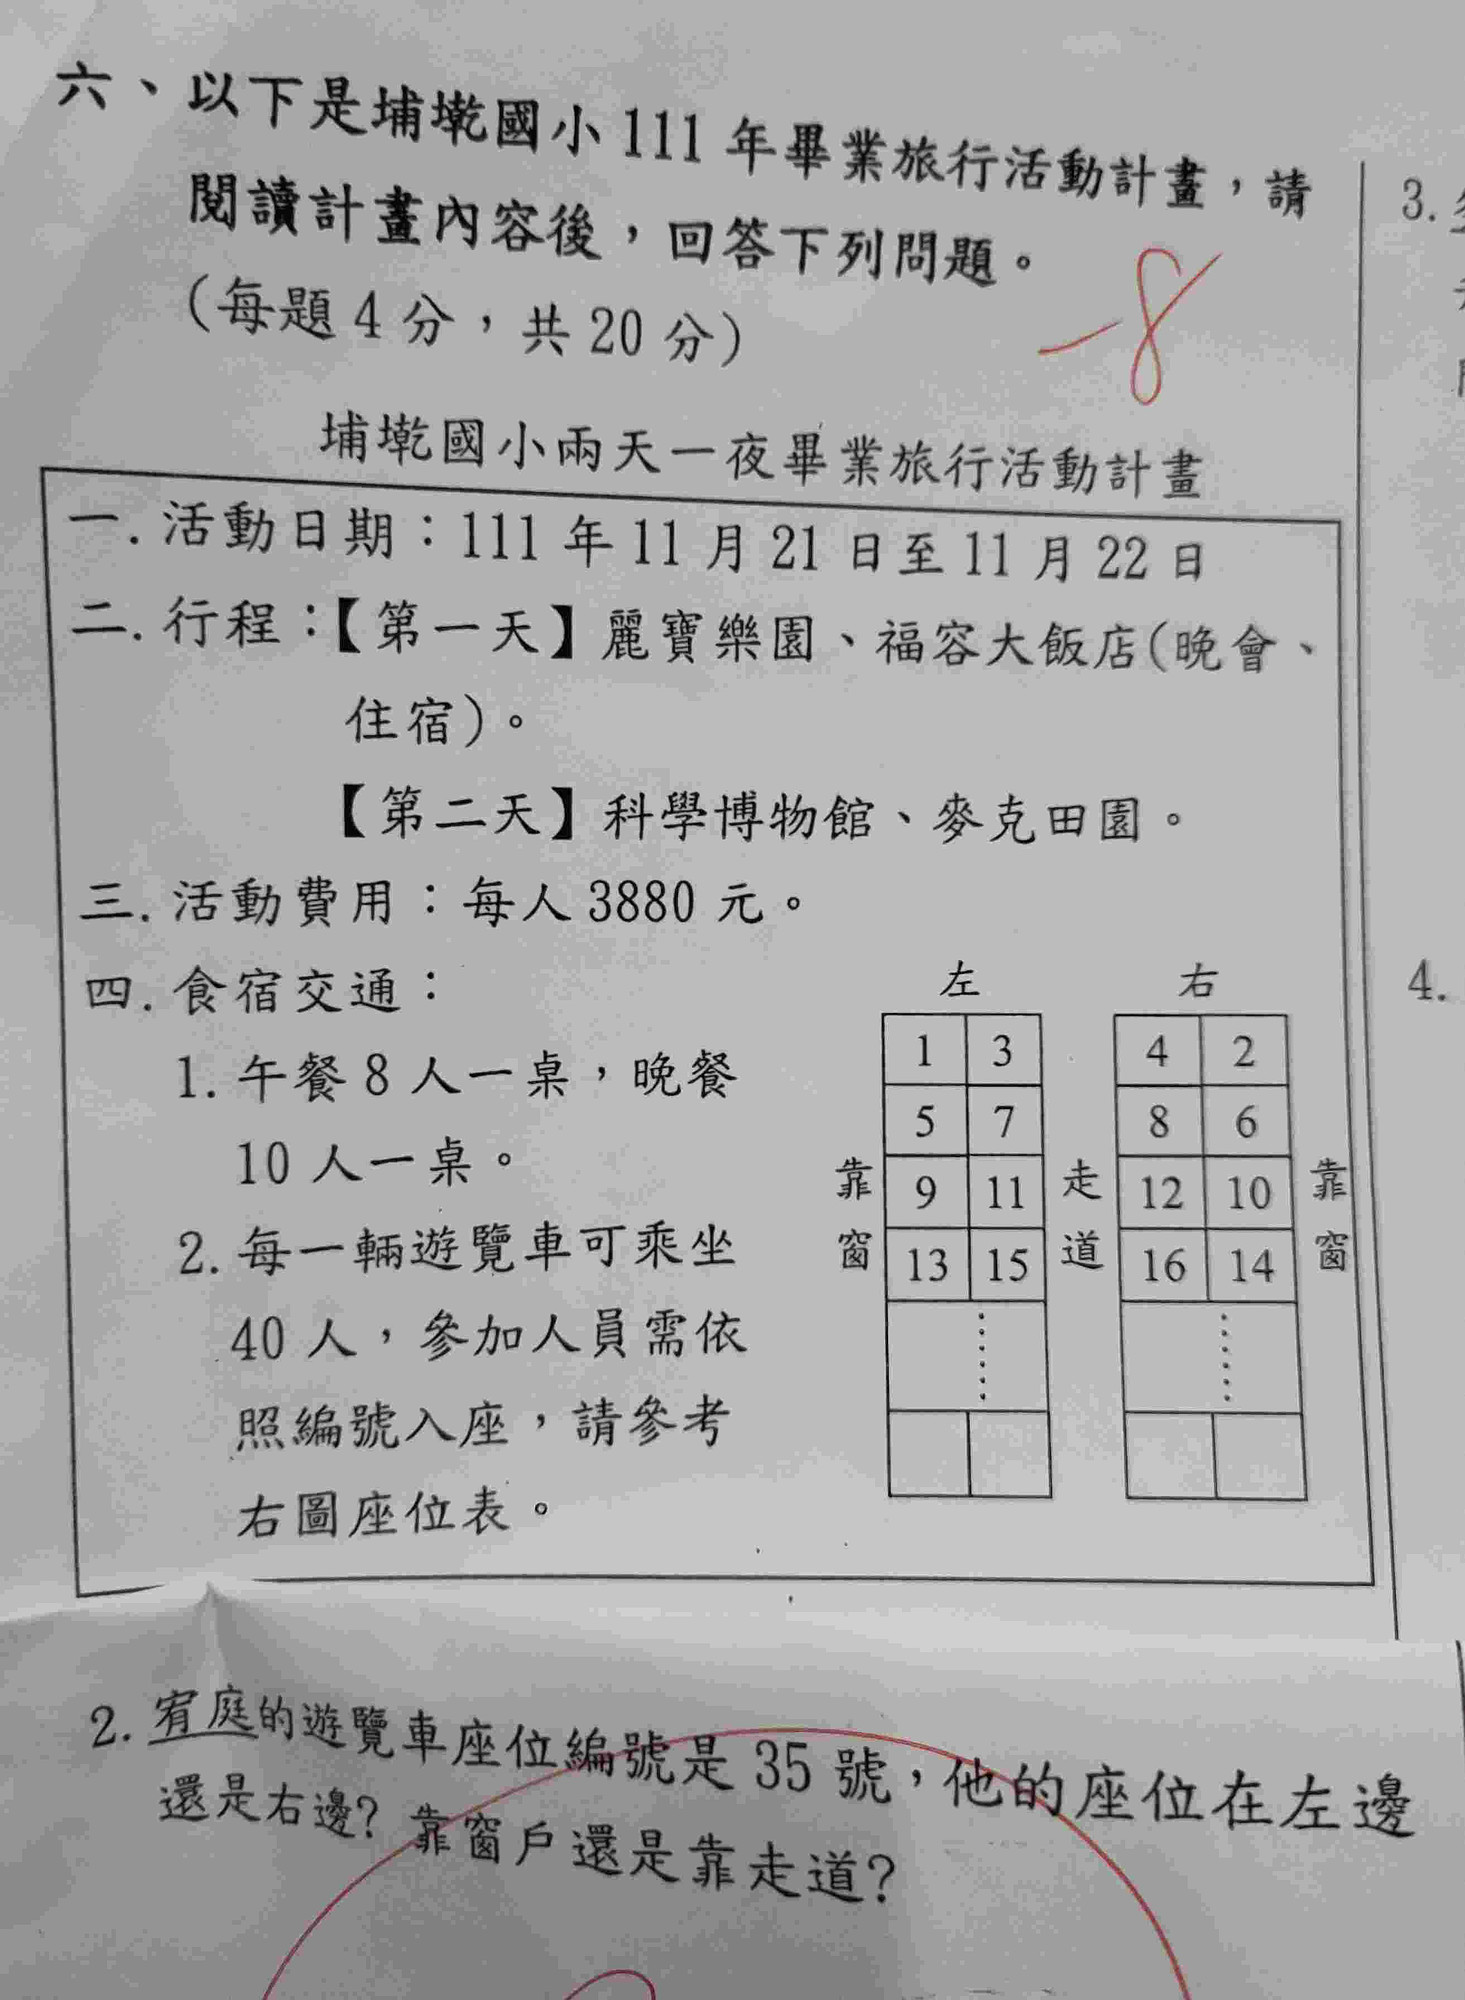 六、以下是埔墘國小111年畢業旅行活動計畫，請
閱讀計畫內容後，回答下列問題。
（每題4分，共20分）
-8
埔墘國小兩天一夜畢業旅行活動計畫
一.活動日期：111年11月21日至11月22日
二.行程：【第一天】麗寶樂園、福容大飯店(晚會、
住宿)。
【第二天】科學博物館、麥克田園。
三.活動費用：每人3880元。
四.食宿交通：
1.午餐8人一桌，晚餐
10人一桌。
2.每一輛遊覽車可乘坐
40人，參加人員需依
照編號入座，請參考
右圖座位表。
左 右
1 3 4 2
5 7 8 6
9 11 12 10
13 15 16 14
靠窗 走道 靠窗
2.宥庭的遊覽車座位編號是35號，他的座位在左邊
還是右邊?靠窗戶還是靠走道?
3.
4.